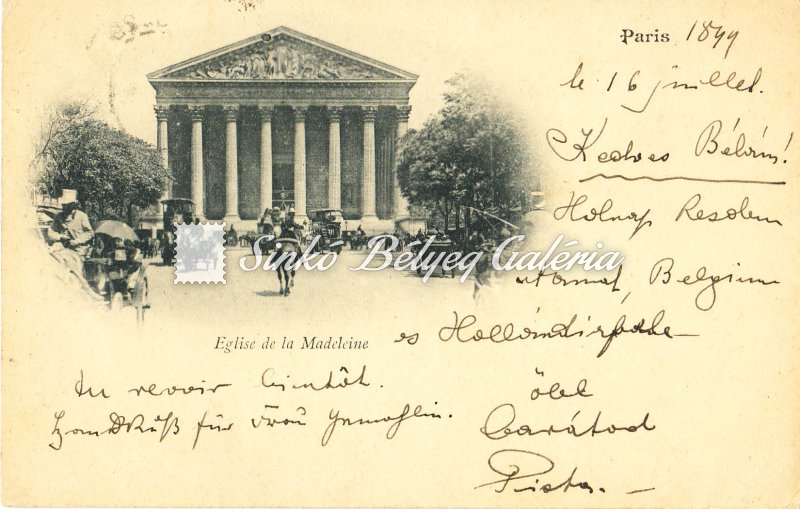 Paris 1899
le 16 juillet.
Kedves Bélám!
Holnap kezdem
utamat, Belgium
es Hollandi
Sinkó Bélyeg Galéria
Eglise de la Madeleine
Au revoir bientôt.
Handkuß für Frau Gemahlin.
ölel
barátod
Pista.